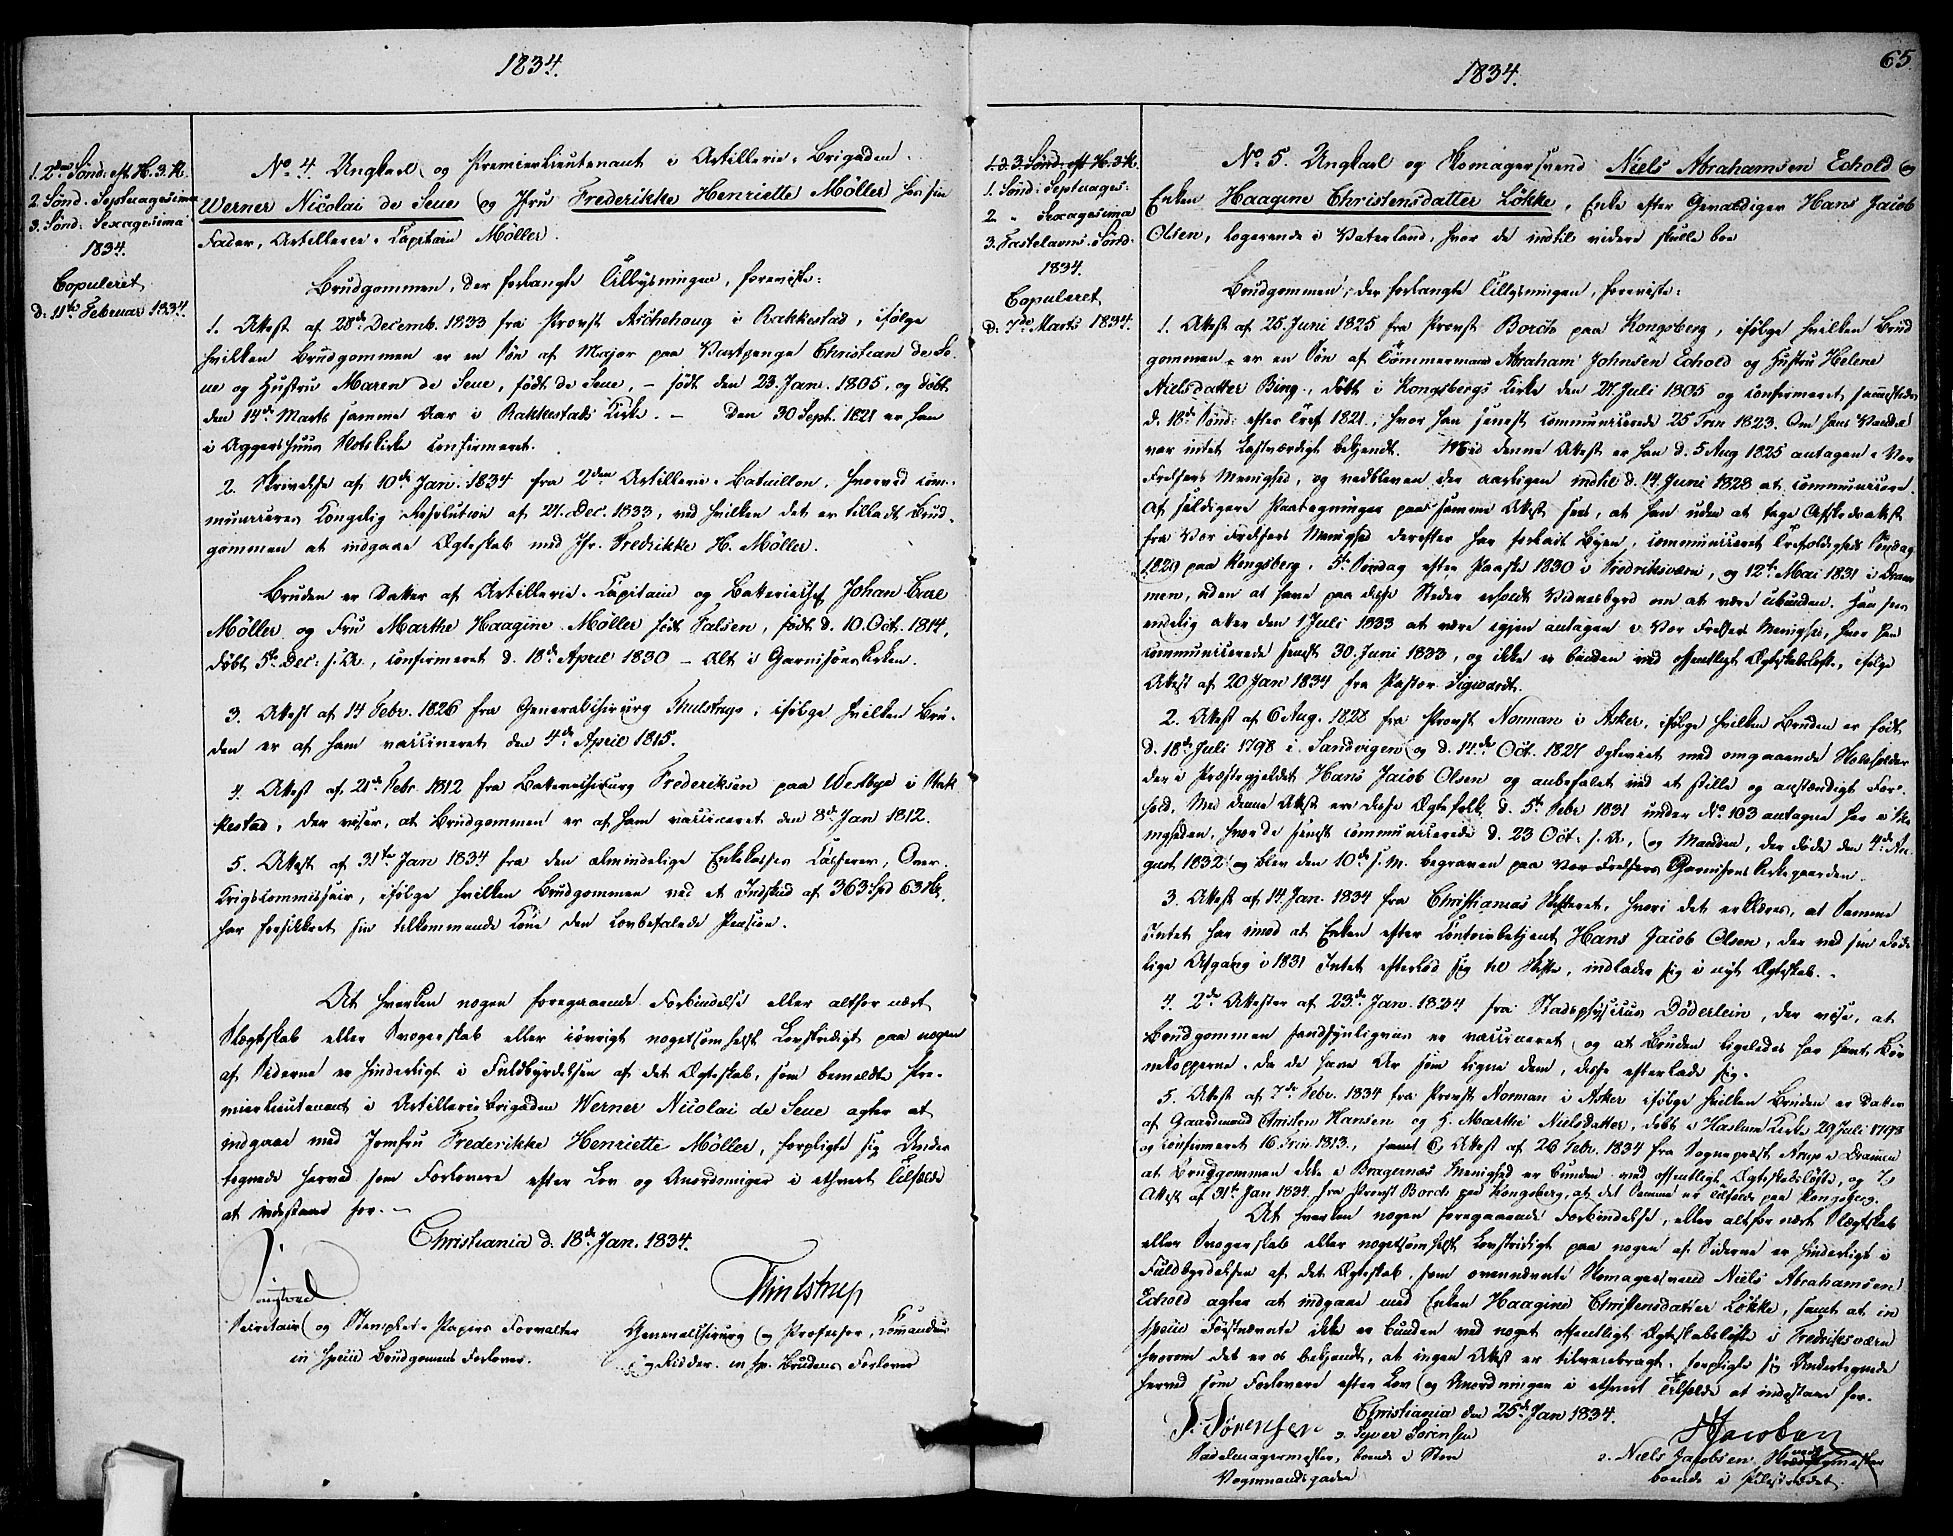 1834.
1. 2den Sönd: eft H. 3. K.
2. Sönd. Septuagesima
3. Sönd: Sexagesima
1834.
Copuleret
d. 11te Februar 1834.
No. 4. Ungkarl og Premierlieutenant i Artillerie-Brigaden
Werner Nicolai de Seue og Jfru Frederikke Henriette Möller hos sin
Fader, Artillerie-Capitain Möller.
Brudgommen, der forlangte Tillysningen, foreviste:
1. Attest af 28de Decemb. 1833 fra Provst Aschehoug i Rakkestad, ifølge
hvilken Brudgommen er en Søn af Major paa Vartpenge Christian de Se-
ue og Hustru Maren de Seue, født de Seue, – født den 23. Jan. 1805, og døbt
den 14de Marts samme Aar i Rakkestads Kirke. – Den 30 Sept. 1821 er han
i Aggershuus Slotskirke confirmeret.
2. Skrivelse af 10de Jan. 1834 fra 2den Artillerie-Batallion, hvorved com-
municeres Kongelig Resolution af 27. Dec. 1833, ved hvilken det er tilladt Brud-
gommen at indgaae Ægteskab med Jfr. Fredrikke H. Möller.
Bruden er Datter af Artillerie-Capitain og Batteriechef Johan Cure
Möller og Fru Marthe Haagine Möller født Falsen, født d. 10. Oct. 1814,
døbt 5te Dec: s. A., confirmeret d. 18de April 1830 – Alt i Garnisonskirken.
3. Attest af 14 Febr. 1826 fra Generalchirurg Thulstrup, ifølge hvilken Bru-
den er af ham vaccineret den 4de April 1815.
4. Attest af 21de Febr. 1812 fra Bataillonschirurg Frederiksen paa Westbye i Rak
kestad, der viser, at Brudgommen er af ham vaccineret den 8de Jan 1812.
5. Attest af 31te Jan 1834 fra den almindelige Enkekasses Casserer, Over-
Krigscommissair, ifølge hvilken Brudgommen ved et Indskud af 363 Spd 63 Sk.
har forsikkret sin tilkommende Kone den lovbefalede Pension.
At hverken nogen foregaaende Forbindelse eller altfor nært
Slægtskab eller Svogerskab eller iøvrigt nogetsomhelst Lovstridigt paa nogen
af Siderne er hinderligt i Fuldbyrdelsen af det Ægteskab, som bemeldte Pre-
mierlieutenant i Artilleriebrigaden Werner Nicolai de Seue agter at
indgaae med Jomfru Frederikke Henriette Möller, forpligte sig Under
tegnede herved som Forlovere efter Lov og Anordninger i ethvert Tilfælde
at indestaae for. –
Christiania d. 18de Jan. 1834.
Thulstrup
Secretair og Stemplet-Papirs Forvalter
in specie Brudgomens Forlover.
Generalchirurg og Professor, Commandeur
og Ridder. in sp. Brudens Forlover
1834.
65.
1. d. 3. Sönd: eft H. 3. K.
1. Sönd: Septuages:
2 " Sexagesima
3. Fastelavns-Sönd.
1834.
Copuleret
d. 7de Marts 1834.
No. 5. Ungkarl og Skomagersvend Niels Abrahamsen Echold og
Enken Haagine Christensdatter Løkke, Enke efter Gevaldiger Hans Jacob
Olsen, logerende i Vaterland, hvor de indtil videre skulle boe
Brudgommen, der forlangte Tillysningen, foreviste:
1. Attest af 25. Juni 1825 fra Provst Borch paa Kongsberg, ifølge hvilken Brud
gommen er en Søn af Tømmermand Abraham Johnsen Echold og Hustru Helene
Nielsdatter Bing, døbt i Kongsbergs Kirke den 21. Juli 1805 og confirmeret sammesteds
d. 18de Sönd: efter Tref 1821, hvor han senest communicerede 25 Trin 1823. Om hans Vandel
var intet Lastværdigt bekjendt. Med denne Attest er han d. 5 Aug 1825 antagen i Vor
Frelsers Menighed, og vedbleven der aarligen indtil d. 14 Juni 1828 at communicere.
Af sildigere Paategninger paa samme Attest sees, at han uden at tage Afskedsattest
fra Vor Frelsers Menighed derefter har forladt Byen, communiceret Trefoldigheds Søndag
1829 paa Kongsberg, 5te Søndag efter Paaske 1830 i Fredriksværn, og 12te Mai 1831 i Dram
men, uden at have paa disse Steder erholdt Vidnesbyrd om at være ubunden. Han sees
endelig atter den 1 Juli 1833 at være igjen antagen i Vor Frelsers Menighed, hvor han
communicerede senest 30 Juni 1833, og ikke er bunden ved offentligt Ægteskabsløfte, ifølge
Attest af 20 Jan 1834 fra Pastor Sigwardt.
2. Attest af 6 Aug. 1828 fra Provst Norman i Asker, ifølge hvilken Bruden er født
d. 18de Juli 1798 i Sandvigen og d. 14de Oct. 1827 ægteviet med omgaaende
der i Præstegjeldet Hans Jacob Olsen og anbefalet ved et stille og anstændigt For-
hold. Med denne Attest ere disse Ægtefolk d. 5te Febr 1831 under No. 103 antagne her i Me
nigheden, hvor de senest communicerede d. 23 Oct: s. A., og Manden, der døde den 4de Au-
gust 1832 og blev den 10de s. M. begraven paa Vor Frelsers Garnisons Kirkegaarden.
3. Attest af 14. Jan. 1834 fra Christianias Skifteret, hvori det erklæres, at Samme
Intet har imod at Enken efter Contoirbetjent Hans Jacob Olsen, der ved sin døde-
lige Afgang i 1831 Intet efterlod sig til Skifte, indlader sig i nyt Ægteskab. –
4. 2de Attester af 23de Jan. 1834 fra Stadsphysicus Döderlein, der vise, at
Brudgommen sandsynligviis er vaccineret og at Bruden ligeledes har havt Bør
nekopperne, da de have Ar som ligne dem, disse efterlade sig.
5. Attest af 7de Febr. 1834 fra Provst Norman i Asker ifølge hvilken Bruden er Datter
af Gaardmand Christen Hansen og H. Marthe Nielsdatter, døbt i Haslum Kirke 29 Juli 1798
og confirmeret 16 Trin 1813, samt 6, Attest af 26 Febr. 1834 fra Sognepræst Arup i Dramen
at Brudgommen ikke i Bragernæs Menighed er bunden ved offentligt Ægteskabsløfte, og 7,
Attest af 31te Jan 1834 fra Provst Borch paa Kongsberg, at det Samme er Tilfælde paa Kongsberg.
At hverken nogen foregaaende Forbindelse, eller altfor nært Slægtskab
eller Svogerskab eller nogetsomhelst Lovstridigt paa nogen af Siderne er hinderligt i
Fuldbyrdelsen af det Ægteskab, som ovennævnte Skomagersvend Niels Abrahamsen
Echold agter at indgaae med Enken Haagine Christensdatter Løkke, samt at in
specie Førstnævnte ikke er bunden ved noget offentligt Ægteskabsløfte i Fredriksværn
hvorom det er os bekjendt, at ingen Attest er tilveiebragt, forpligte sig Undertegnede
herved som Forlovere efter Lov og Anordningen i ethvert Tilfælde at indestaae for.
Christiania den 25de Jan 1834.
S. Sörensen
o: Syver Sörensen
Sadelmagermester, boende i Store
Vognmandsgaden
NJacobsen
o: Niels Jacobsen,
boende i Pilestrædet.